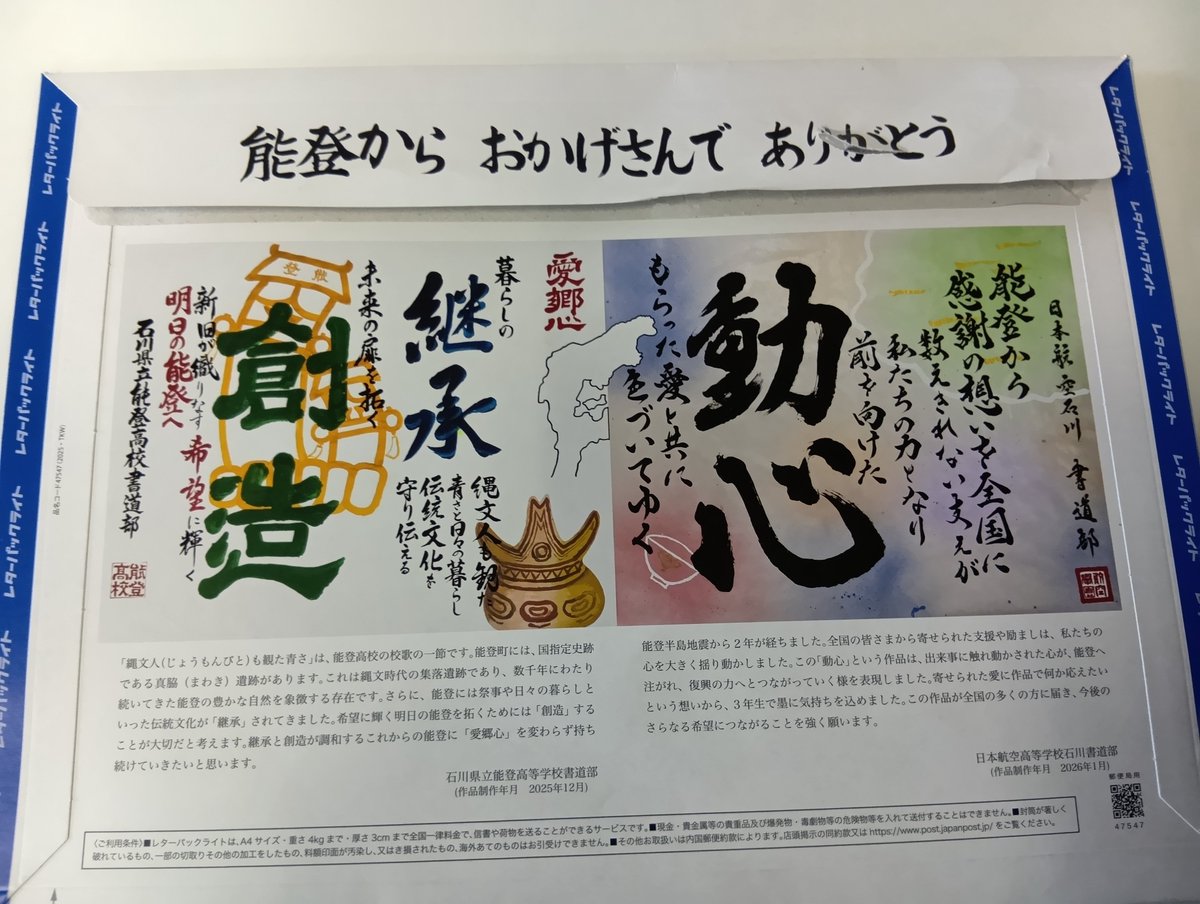 能登から おかげさんで ありがとう
レターパックライト
日本航空石川 書道部
能登から
感謝の想いを全国に
数えきれない支えが
私たちの力となり
前を向けた
動心
もらった愛と共に
愛郷心
暮らしの
継承
縄文人も観た
青さと日々の暮らし
伝統文化を
守り伝える
未来の扉を拓く
創造
新旧が織りなす希望に輝く
明日の能登へ
石川県立能登高校書道部
能登
高校
「縄文人(じょうもんびと)も観た青さ」は、能登高校の校歌の一節です。能登町には、国指定史跡
である真脇(まわき)遺跡があります。これは縄文時代の集落遺跡であり、数千年にわたり
続いてきた能登の豊かな自然を象徴する存在です。さらに、能登には祭事や日々の暮らしと
いった伝統文化が「継承」されてきました。希望に輝く明日の能登を拓くためには「創造」する
ことが大切だと考えます。継承と創造が調和するこれからの能登に「愛郷心」を変わらず持ち
続けていきたいと思います。
石川県立能登高等学校書道部
(作品制作年月 2025年12月)
能登半島地震から2年が経ちました。全国の皆さまから寄せられた支援や励ましは、私たちの
心を大きく揺り動かしました。この「動心」という作品は、出来事に触れ動かされた心が、能登へ
注がれ、復興の力へとつながっていく様を表現しました。寄せられた愛に作品で何か応えたい
という想いから、3年生で墨に気持ちを込めました。この作品が全国の多くの方に届き、今後の
さらなる希望につながることを強く願います。
日本航空高等学校石川書道部
(作品制作年月 2026年1月)
郵便局用
47547
品名コード47547(2025・TKW)
〈ご利用条件〉■レターパックライトは、A4サイズ・重さ4kgまで・厚さ3cmまで全国一律料金で、信書や荷物を送ることができるサービスです。■現金・貴金属等の貴重品及び爆発物・毒劇物等の危険物等を入れて送付することはできません。■封筒が著しく
破れているもの、一部の切取りその他の加工をしたもの、料額印面が汚染し、又はき損されたもの、海外あてのものはお引受けできません。■その他お取扱いは内国郵便約款によります。店頭掲示の同約款又は https://www.post.japanpost.jp/ をご覧ください。